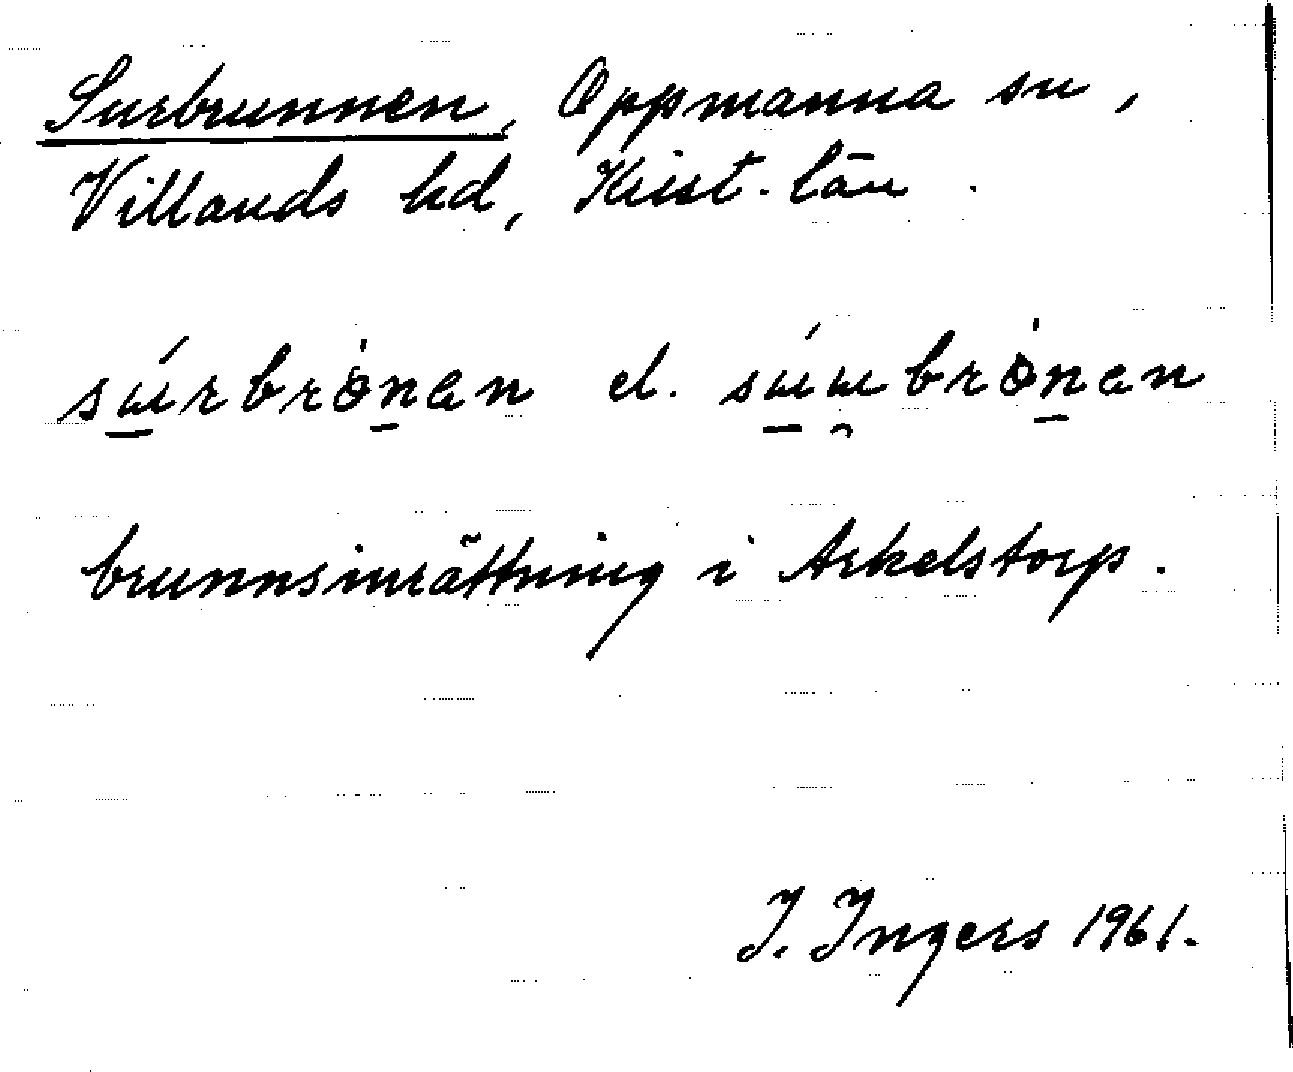 Surbrunnen, Oppmanna sn,
Villands hd, Krist. län.
sɯ́rbrònan el. sɯ́ɯ̯brònan
brunnsinrättning i Arkelstorp.
I. Ingers 1961.